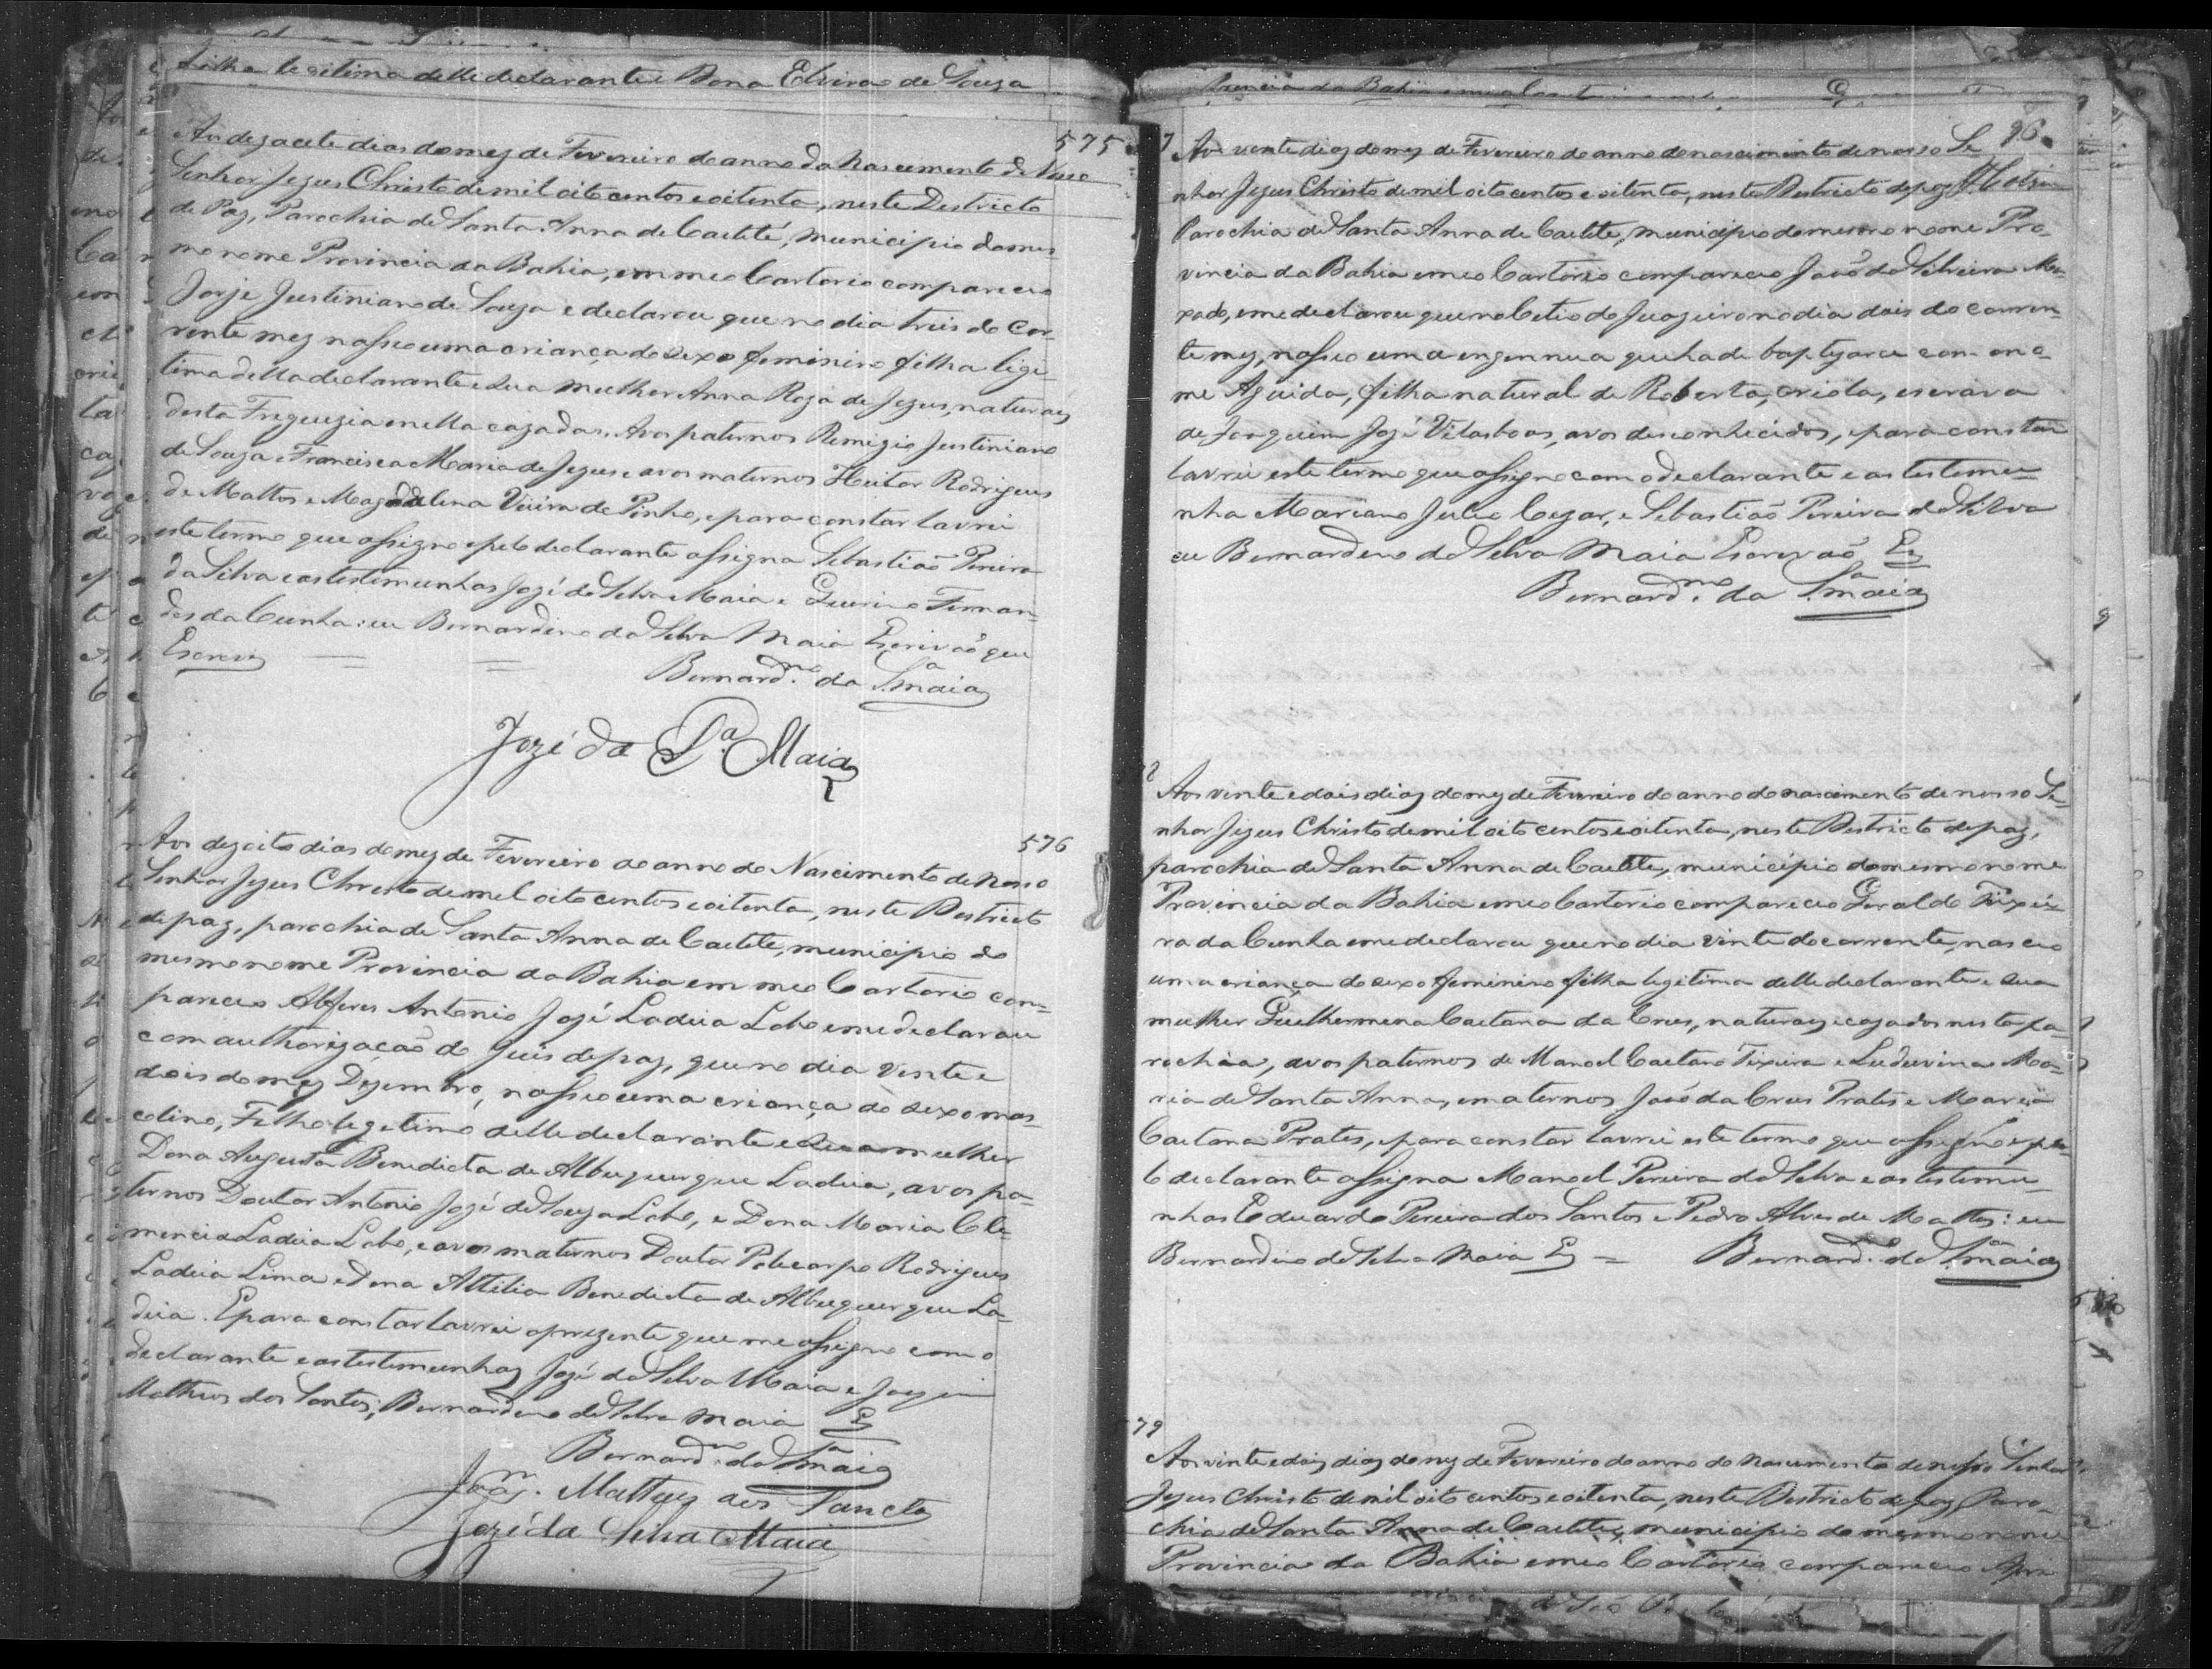 Filha legitima delle declarante e Dona Elvira de Souza
575
Aos dezacete dias do mez de Fevereiro do anno do Nascimento de Nosso
Senhor Jezus Christo de mil oito centos e oitenta, neste Districto
de Paz, Parochia de Santa Anna de Caetité, Municipio do mes-
mo nome Provincia da Bahia, em meo Cartorio compareceo
Jorje Justiniano de Souza e declarou que no dia treis do Cor-
rente mez nasceo uma criança do sexo feminino filha legi-
tima delle declarante e sua mulher Anna Roza de Jezus, naturaes
desta Freguezia e nella cazados. Avos paternos Remigio Justiniano
de Souza e Francisca Maria de Jezus e avos maternos Heitor Rodrigues
de Mattos e Magdalena Vieira de Pinho, e para constar lavrei
este termo que assigno e pelo declarante assigna Sebastião Pereira
da Silva e as testemunhas Jozé da Silva Maia e Guirino Fernan-
des da Cunha: eu Bernardino da Silva Maia Escrivão que
Escrevi = = Bernard.no da S.a Maia
Jozé da S.a Maia
576
Aos dezoito dias do mez de Fevereiro do anno do Nascimento de Nosso
Senhor Jezus Christo de mil oito centos e oitenta, neste Destricto
de paz, parochia de Santa Anna de Caetite, municipio do
mesmo nome Provincia da Bahia em meo Cartorio com-
pareceo Alferes Antonio Jozé Ladeia Lobo e me declarou
com authorização do Juis de paz, que no dia vinte e
dois do mez Dezembro, nasceo uma criança do sexo mas-
colino, Filho legetimo delle declarante e sua mulher
Dona Augusta Benedicta de Albuquerque Ladeia, avos pa-
ternos Doutor Antonio Jozé de Souza Lobo, e Dona Maria Cle-
mencia Ladeia Lobo, e avos maternos Doutor Policarpo Rodrigues
Ladeia Lima e Dona Attilia Benedicta de Albuquerque La-
deia. E para constar lavrei o prezente que me assigno com o
declarante e as testimunhas Jozé da Silva Maia e Joaquim
Matheus dos Santos; Bernardino da Silva Maia Es
Bernard.no da S.a Maia
Joaq.m Matheus dos Sanctos
Jozé da Silva Maia
Provincia da Bahia em meo Cartorio
96
7
Aos vinte dias do mez de Fevereiro do anno do nascimento de nosso Se
nhor Jezus Christo de mil oito centos e oitenta, neste Destricto de paz
Parochia de Santa Anna de Caetite, municipio do mesmo nome Pro-
vincia da Bahia em meo Cartorio compareceo João da Silveira Ma-
xado, e me declarou que no Citio do Juazeiro no dia dois do corren-
te mez, nasceo uma engennua que ha de baptizarce com o no-
me Aguida, filha natural de Roberta, criola, escrava
de Joaquim Jozé Vilasboas, avos desconhecidos, e para constar
lavrei este termo que assigno com o declarante e as testemu-
nha Mariano Julio Cezar, e Sebastião Pereira da Silva
eu Bernardino da Silva Maia Escrivão Es
Bernard.no da S.a Maia
8
Aos vinte e dois dias do mez de Fevereiro do anno do nascimento de nosso Se-
nhor Jezus Christo de mil oito centos e oitenta, neste Destricto de paz,
parochia de Santa Anna de Caetite, municipio do mesmo nome
Provincia da Bahia em meo Cartorio compareceo Geraldo Teixei-
ra da Cunha e me declarou que no dia vinte do corrente, nasceo
uma criança do sexo feminino filha legitima delle declarante e sua
mulher Guilhermina Caetana da Crus, naturaes e cazados nesta pa-
rochia, avos paternos de Manoel Caetano Teixeira e Luduvina Ma-
ria de Santa Anna, e maternos João da Crus Prates e Maria
Caetana Prates, e para constar lavrei este termo que assigno e pe-
lo declarante assigna Manoel Pereira da Silva e as testemu-
nhas Eduardo Pereira dos Santos e Pedro Alves de Mattos: eu
Bernardino da Silva Maia Es = Bernard.no da S.a Maia
79
Aos vinte e dois dias do mez de Fevereiro do anno do nascimento de nosso Senhor
Jezus Christo de mil oito centos e oitenta, neste Destricto de paz, Paro-
chia de Santa Anna de Caetite, municipio do mesmo nome
Provincia da Bahia em meo Cartorio compareceo